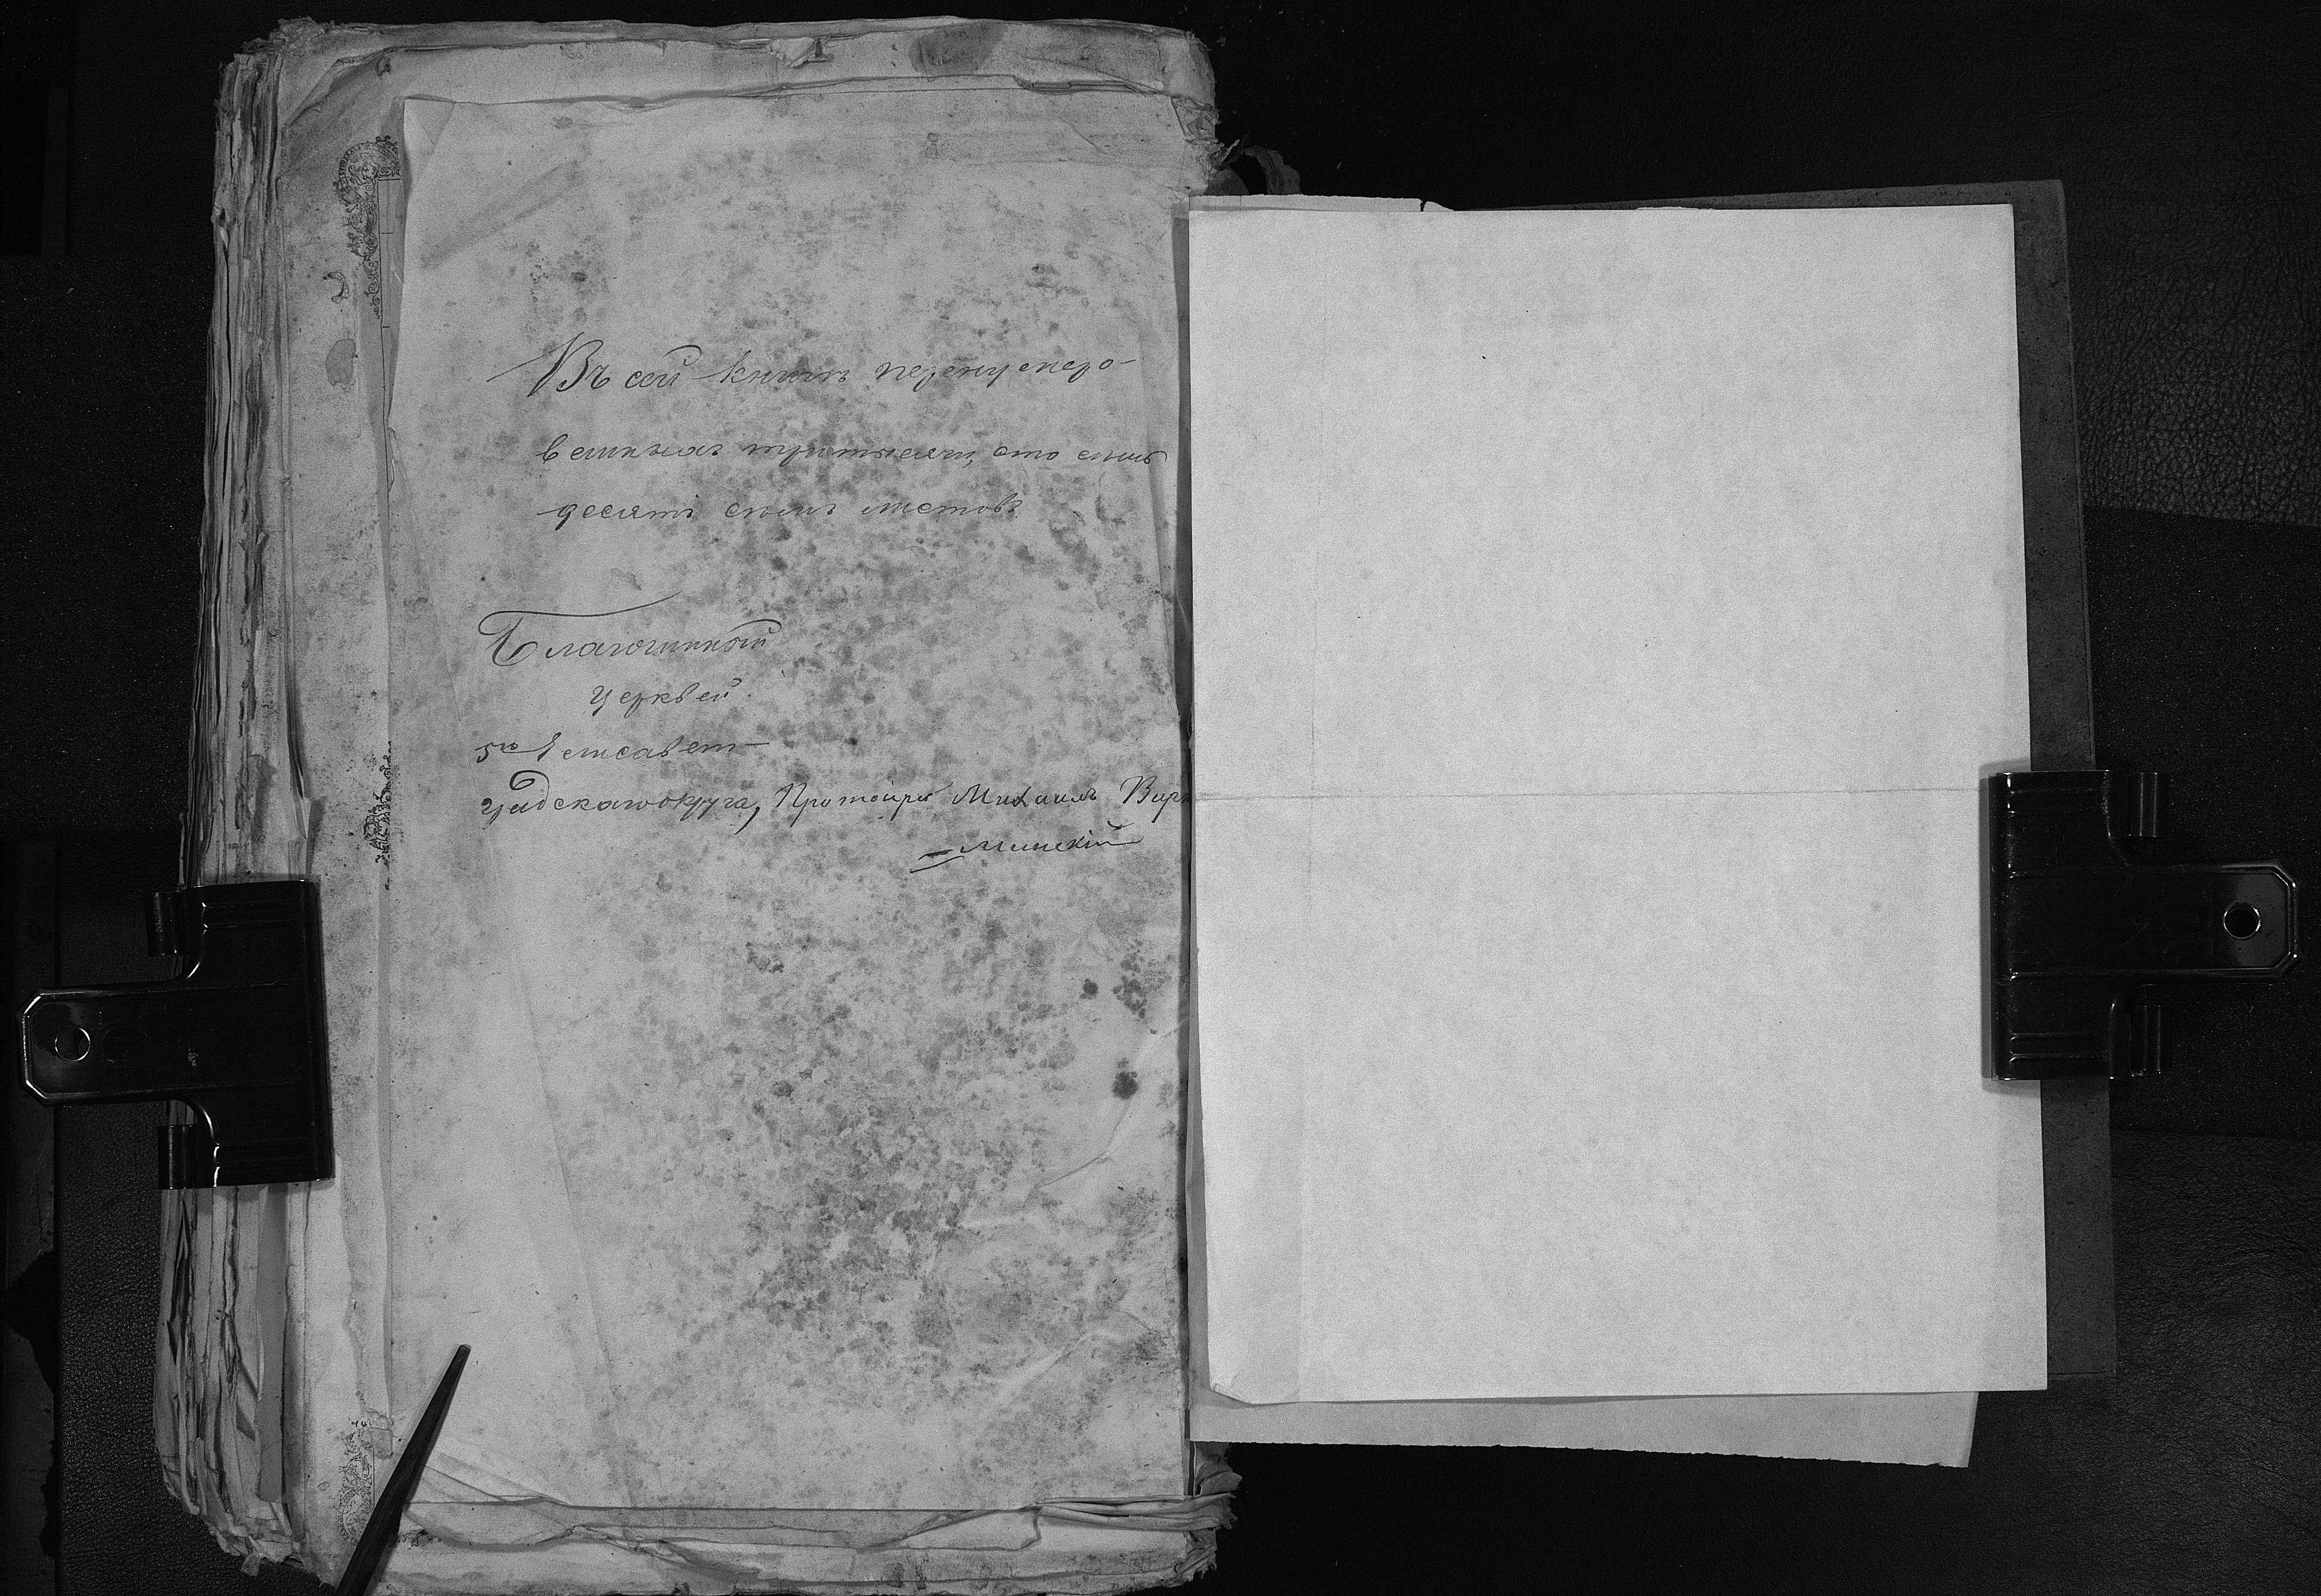 Въ сей книгѣ перенумеро-
ванныхъ три тысячи, сто семь
десятъ семь листовъ
Благочинный
Церквей
5го Елисавет-
градскаго округа, Протоіерей Михаилъ Вар
=минскій